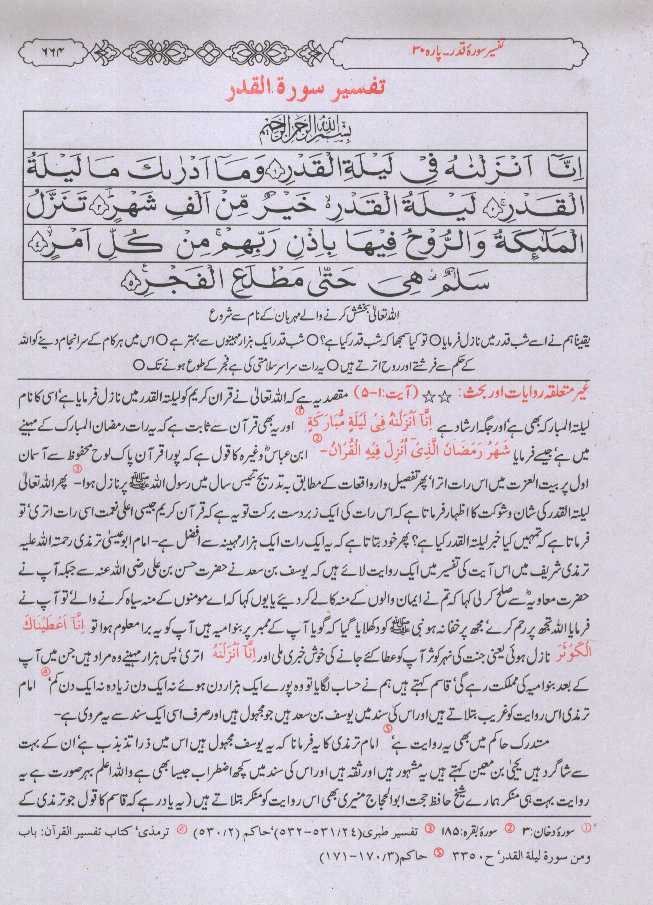 تفسیر سورۂ قدر۔ پارہ ۳۰
۶۶۴
تفسیر سورة القدر
بسم الله الرحمن الرحيم
اِنَّاۤ اَنْزَلْنٰهُ فِیْ لَیْلَةِ الْقَدْرِ۝۱ وَمَاۤ اَدْرٰىكَ مَا لَیْلَةُ
الْقَدْرِ۝۲ لَیْلَةُ الْقَدْرِ خَیْرٌ مِّنْ اَلْفِ شَهْرٍ۝۳ تَنَزَّلُ
الْمَلٰٓىِٕكَةُ وَالرُّوْحُ فِیْهَا بِاِذْنِ رَبِّهِمْ مِنْ كُلِّ اَمْرٍ۝۴
سَلٰمٌ هِیَ حَتّٰى مَطْلَعِ الْفَجْرِ۝۵
اللہ تعالیٰ بخشش کرنے والے مہربان کے نام سے شروع
یقیناً ہم نے اسے شب قدر میں نازل فرمایا ○ تو کیا سمجھا کہ شب قدر کیا ہے؟ ○ شب قدر ایک ہزار مہینوں سے بہتر ہے ○ اس میں ہر کام کے سرانجام دینے کو اللہ
کے حکم سے فرشتے اور روح اترتے ہیں ○ یہ رات سراسر سلامتی کی ہے فجر کے طلوع ہونے تک ○
غیر متعلقہ روایات اور بحث: ☆☆ (آیت: ۱-۵) مقصد یہ ہے کہ اللہ تعالیٰ نے قرآن کریم کو لیلۃ القدر میں نازل فرمایا ہے‘ اسی کا نام
لیلۃ المبارکہ بھی ہے‘ اور جگہ ارشاد ہے اِنَّاۤ اَنْزَلْنٰهُ فِیْ لَیْلَةٍ مُّبَارَكَةٍ ① اور یہ بھی قرآن سے ثابت ہے کہ یہ رات رمضان المبارک کے مہینے
میں ہے‘ جیسے فرمایا شَهْرُ رَمَضَانَ الَّذِیْۤ اُنْزِلَ فِیْهِ الْقُرْاٰنُ- ② ابن عباسؓ وغیرہ کا قول ہے کہ پورا قرآن پاک لوح محفوظ سے آسمان
اول پر بیت العزت میں اس رات اترا‘ پھر تفصیل وار واقعات کے مطابق بہ تدریج تیئس سال میں رسول اللہ ﷺ پر نازل ہوا- ③ پھر اللہ تعالیٰ
لیلۃ القدر کی شان و شوکت کا اظہار فرماتا ہے کہ اس رات کی ایک زبردست برکت تو یہ ہے کہ قرآن کریم جیسی اعلیٰ نعمت اسی رات اتری‘ تو
فرماتا ہے کہ تمہیں کیا خبر لیلۃ القدر کیا ہے؟ پھر خود بتاتا ہے کہ یہ ایک رات ایک ہزار مہینہ سے افضل ہے- امام ابو عیسیٰ ترمذی رحمتہ اللہ علیہ
ترمذی شریف میں اس آیت کی تفسیر میں ایک روایت لائے ہیں کہ یوسف بن سعد نے حضرت حسن بن علی رضی اللہ عنہ سے جبکہ آپ نے
حضرت معاویہؓ سے صلح کر لی کہا کہ تم نے ایمان والوں کے منہ کالے کر دیئے یا یوں کہا کہ اے مومنوں کے منہ سیاہ کرنے والے‘ تو آپ نے
فرمایا اللہ تجھ پر رحم کرے‘ مجھ پر خفا نہ ہو نبی ﷺ کو دکھلایا گیا کہ گویا آپ کے ممبر پر بنو امیہ ہیں آپ کو یہ برا معلوم ہوا تو اِنَّاۤ اَعْطَیْنٰكَ
الْكَوْثَرَ نازل ہوئی یعنی جنت کی نہر کوثر آپ کو عطا کئے جانے کی خوش خبری ملی اور اِنَّاۤ اَنْزَلْنٰهُ اتری‘ پس ہزار مہینے وہ مراد ہیں جن میں آپ
کے بعد بنو امیہ کی مملکت رہے گی‘ قاسم کہتے ہیں ہم نے حساب لگایا تو وہ پورے ایک ہزار دن ہوئے نہ ایک دن زیادہ نہ ایک دن کم‘ ④ امام
ترمذی اس روایت کو غریب بتلاتے ہیں اور اس کی سند میں یوسف بن سعد ہیں جو مجہول ہیں اور صرف اسی ایک سند سے یہ مروی ہے-
مستدرک حاکم میں بھی یہ روایت ہے‘ ⑤ امام ترمذی کا یہ فرمانا کہ یہ یوسف مجہول ہیں اس میں ذرا تذبذب ہے‘ ان کے بہت
سے شاگرد ہیں‘ یحییٰ بن معین کہتے ہیں یہ مشہور ہیں اور ثقہ ہیں اور اس کی سند میں کچھ اضطراب جیسا بھی ہے واللہ اعلم بہر صورت ہے یہ
روایت بہت ہی منکر ہمارے شیخ حافظ حجت ابو الحجاج مزی بھی اس روایت کو منکر بتلاتے ہیں (یہ یاد رہے کہ قاسم کا قول جو ترمذی کے
① سورۂ دخان: ۳ ② سورۂ بقرہ: ۱۸۵ ③ تفسیر طبری (۲۴/۵۳۱-۵۳۲)‘ حاکم (۲/۵۳۰) ④ ترمذی‘ کتاب تفسیر القرآن: باب
ومن سورة لیلة القدر‘ ح ۳۳۵۰ ⑤ حاکم (۳/۱۷۰-۱۷۱)